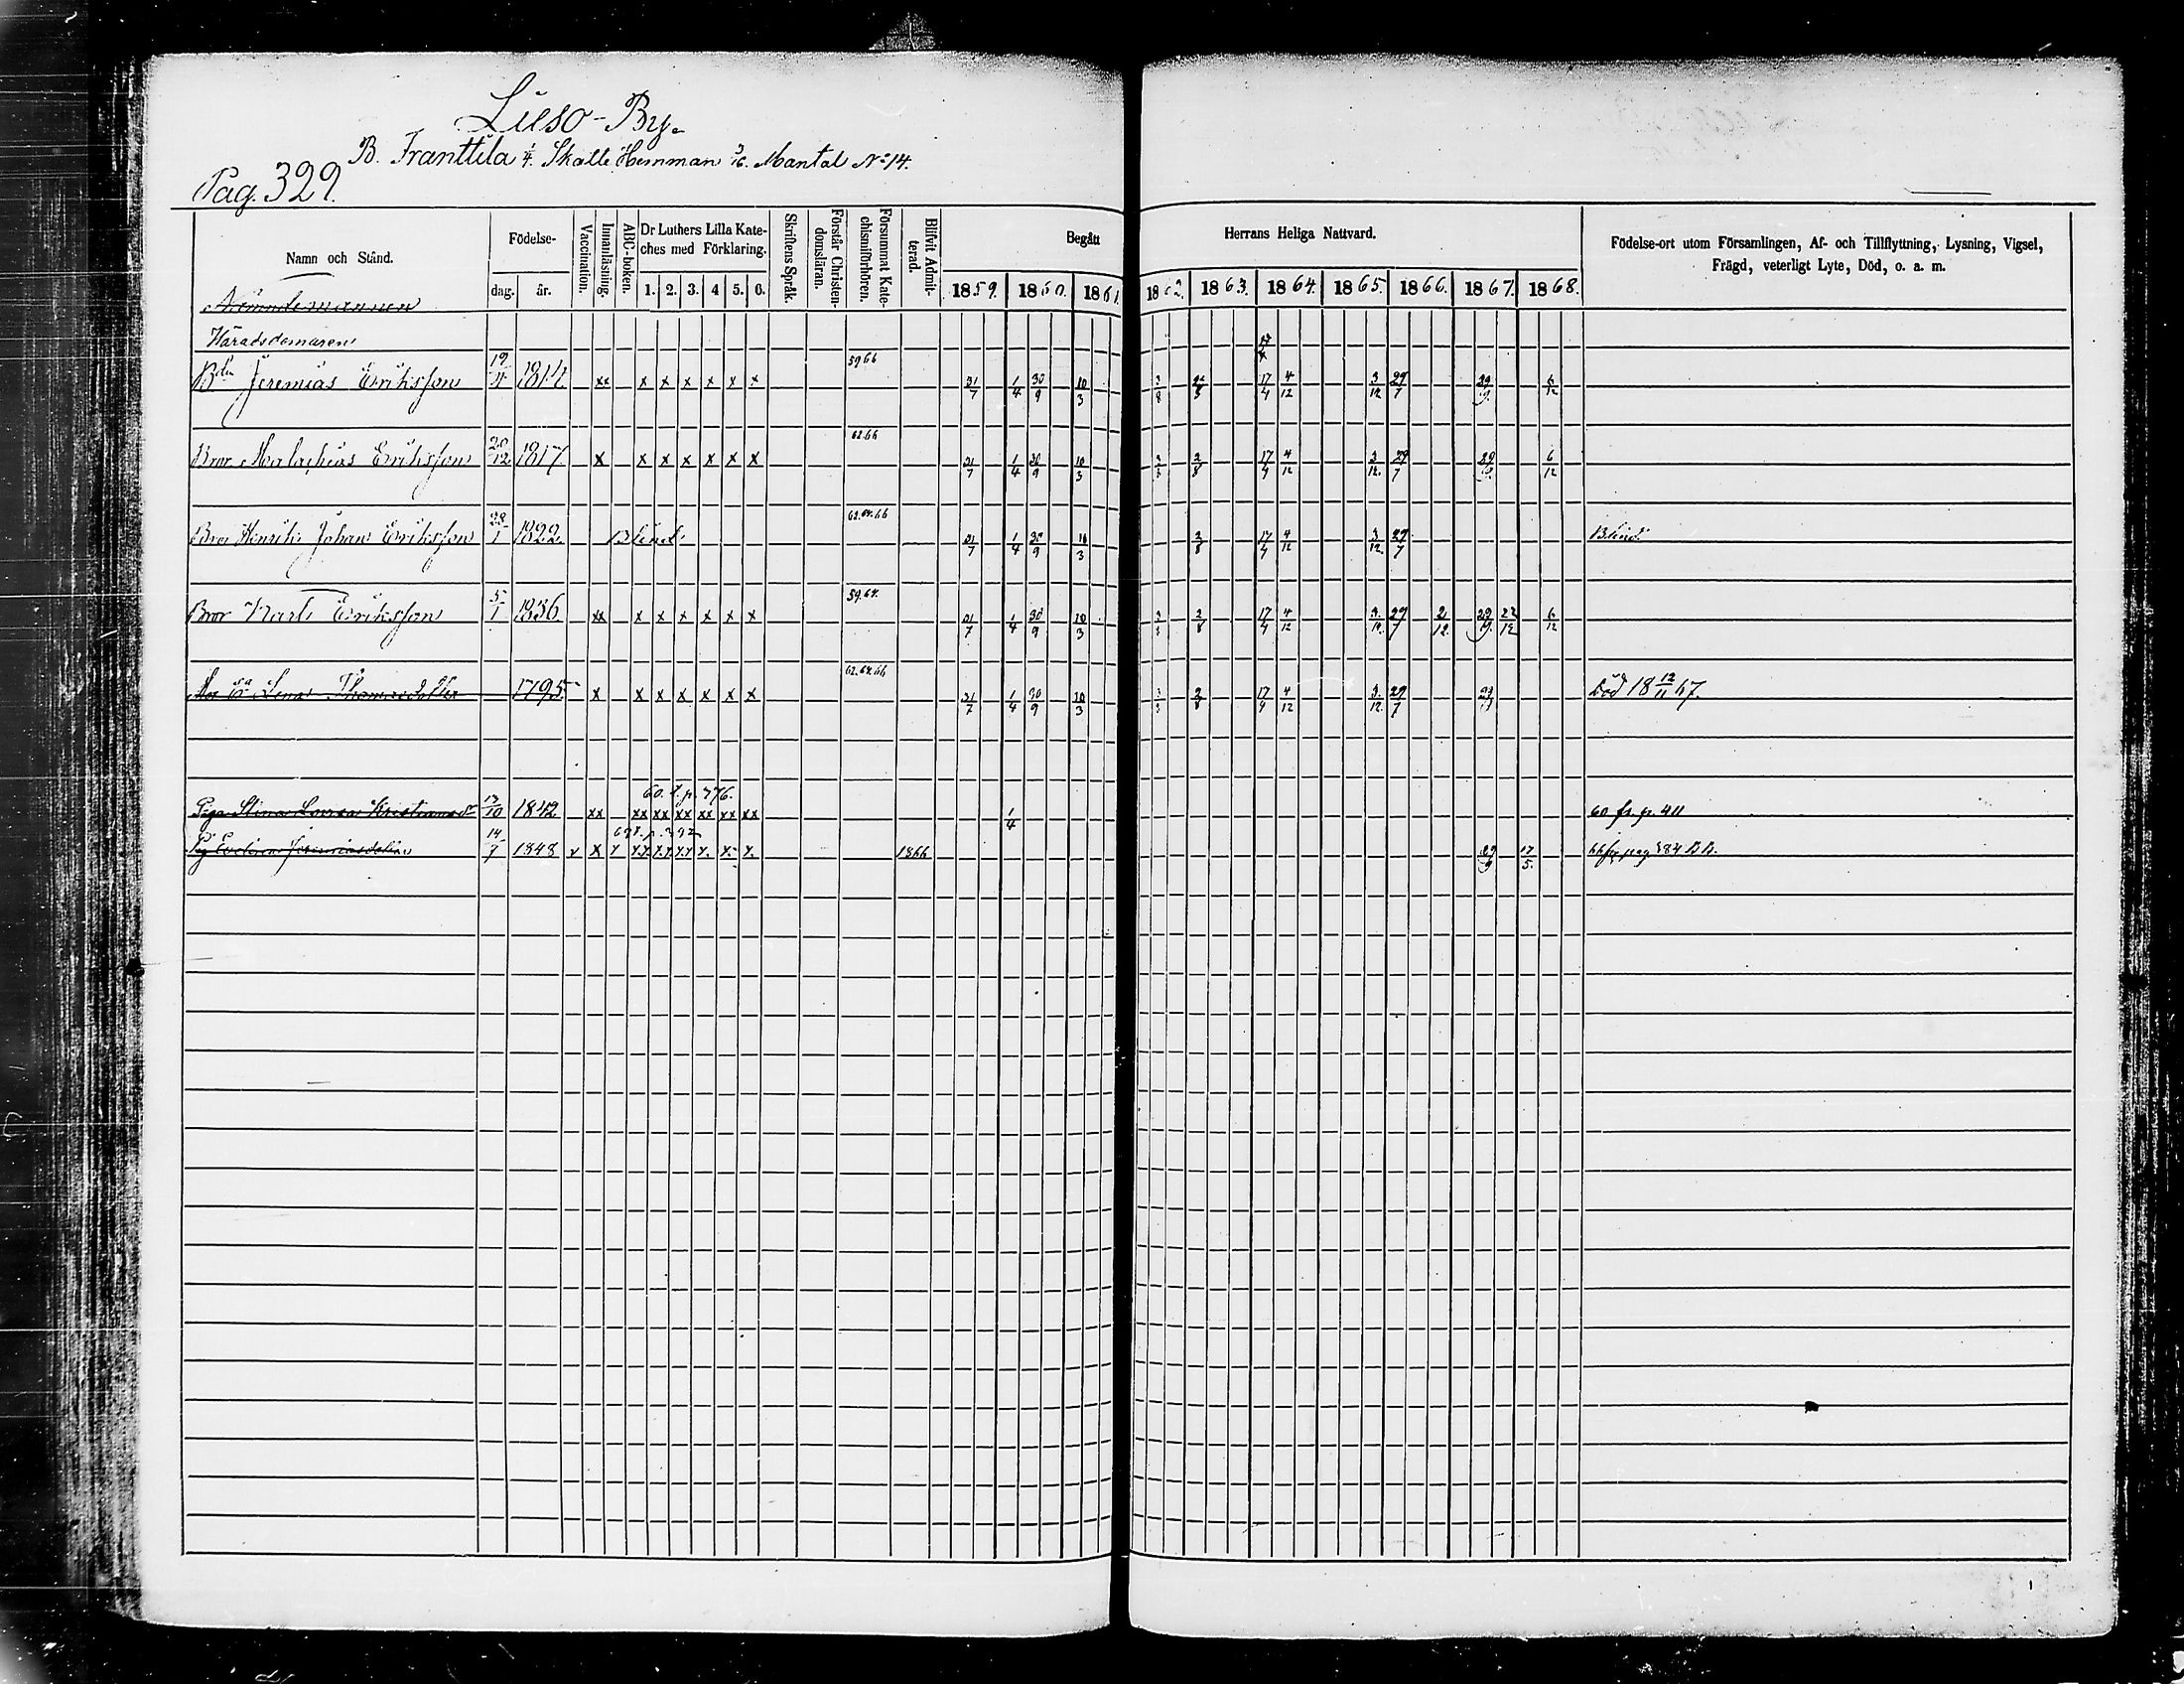 Lieso-By.
B. Franttila 1/4 Skatte Hemman 3/16 Mantal No 14.
Pag. 329.
Namn och Stånd.
Födelse-
dag. år.
Vaccination.
Innanläsning.
ABC-boken.
Dr Luthers Lilla Kate-
ches med Förklaring.
1. 2. 3. 4 5. 6.
Skriftens Språk.
Förstår Christen-
domsläran.
Försummat Kate-
chismiförhören.
Blifvit Admit-
terad.
Begått Herrans Heliga Nattvard.
1859. 1860. 1861. 1862. 1863. 1864. 1865. 1866. 1867. 1868.
Födelse-ort utom Församlingen, Af- och Tillflyttning, Lysning, Vigsel,
Frägd, veterligt Lyte, Död, o. a. m.
Nämndemannen
Häradsdomaren
Jeremias Eriksson 19/4 1814 xx x x x x x x 59 66 31/7 1/4 30/9 10/3 17/4 4/12 3/12 29/7 29/9 6/12
Bror Malachias Eriksson 20/12 1817 x x x x x x x 62.66 31/7 1/4 30/9 10/3 2/8 17/4 4/12 3/12 29/7 29/9 6/12
Bror Henrik Johan Eriksson 28/1 1822. Blind. 62.64.66 31/7 1/4 30/9 10/3 2/8 17/4 4/12 3/12 29/7 Blind.
Bror Karl Eriksson 5/1 1836 xx x x x x x x 59.64. 31/7 1/4 30/9 10/3 2/8 17/4 4/12 3/12 29/7 2/12 29/9 22/12 6/12
Mor Lena Thomasdotter 1795 x x x x x x x 62.64.66 31/7 1/4 30/9 10/3 2/8 17/4 4/12 3/12 29/7 Död 18 12/11 67.
60. t. p. 376.
Piga Stina Lovisa Kristiansdr 13/10 1842 xx xx xx xx xx xx xx 1/4 60 fr. p. 411
Pig Evelina Jeremiasdotter 14/7 1848 1866 29/9 17/5